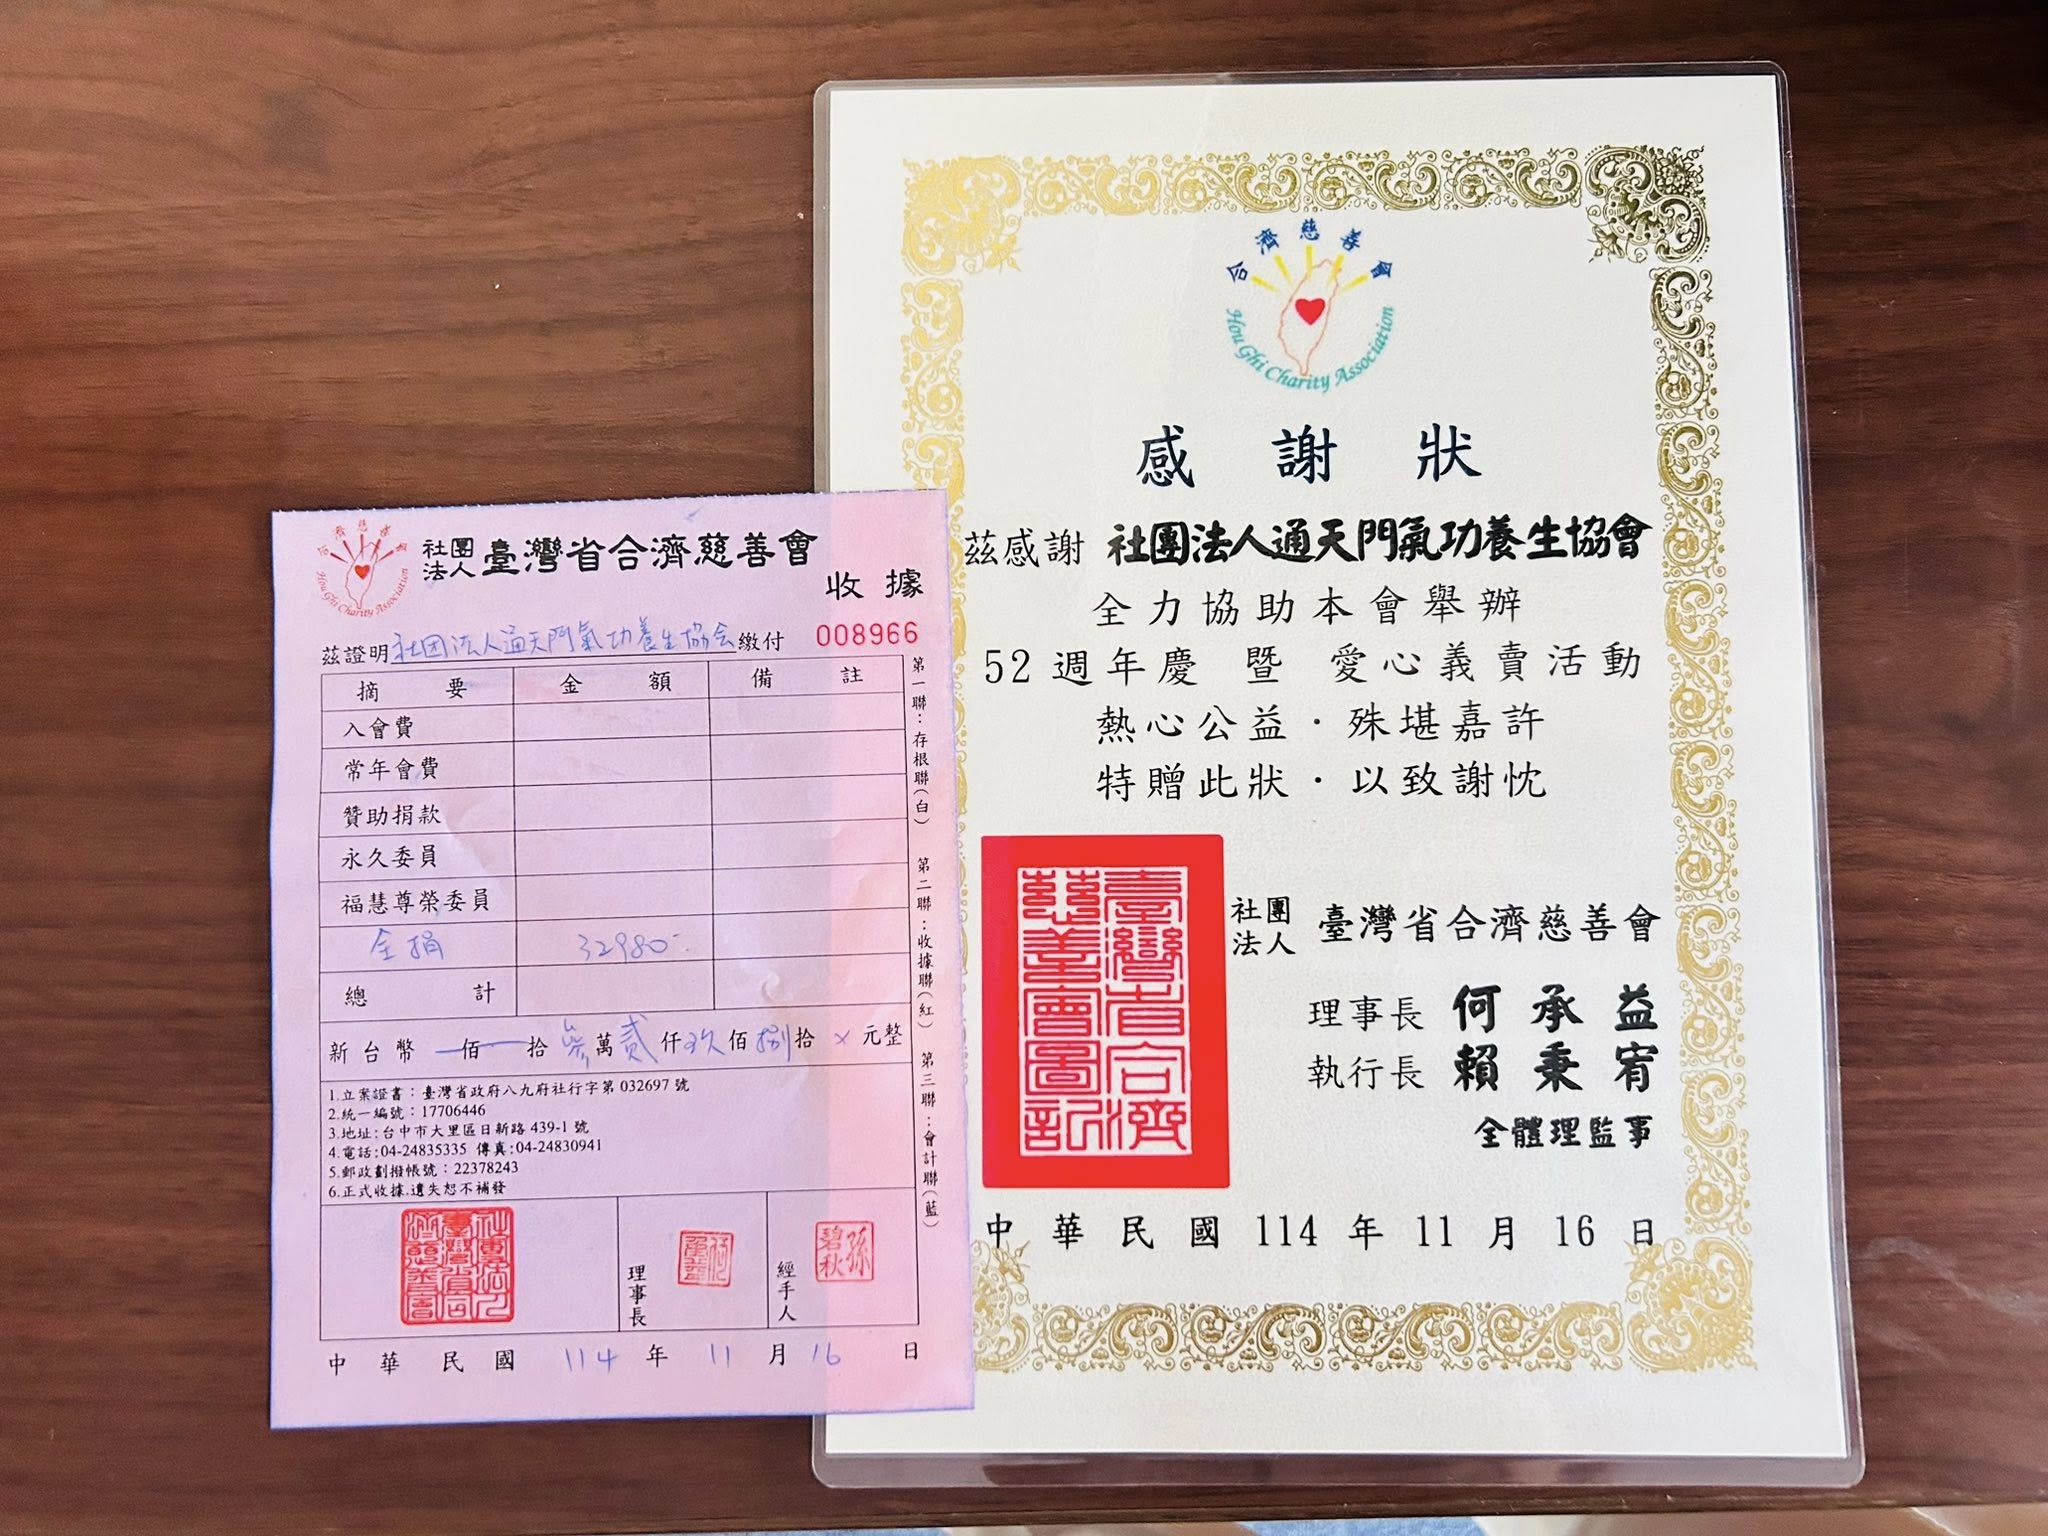 合濟慈善會
Hou Ghi Charity Association
社團法人臺灣省合濟慈善會
收據
茲證明社団法人通天門氣功養生協会繳付 008966
摘要 金額 備註
入會費
常年會費
贊助捐款
永久委員
福慧尊榮委員
全捐 32980-
總計
新台幣 佰 拾 參萬貳仟玖佰捌拾 x 元整
1.立案證書：臺灣省政府八九府社行字第 032697 號
2.統一編號：17706446
3.地址:台中市大里區日新路 439-1 號
4.電話:04-24835335 傳真:04-24830941
5.郵政劃撥帳號：22378243
6.正式收據,遺失恕不補發
理事長
經手人 孫碧秋
中華民國 114 年 11 月 16 日
第一聯：存根聯(白) 第二聯：收據聯(紅) 第三聯：會計聯(藍)
合濟慈善會
Hou Ghi Charity Association
感謝狀
茲感謝 社團法人通天門氣功養生協會
全力協助本會舉辦
52週年慶 暨 愛心義賣活動
熱心公益・殊堪嘉許
特贈此狀・以致謝忱
臺灣省合濟慈善會圖記
社團法人 臺灣省合濟慈善會
理事長 何承益
執行長 賴秉宥
全體理監事
中華民國 114 年 11 月 16 日